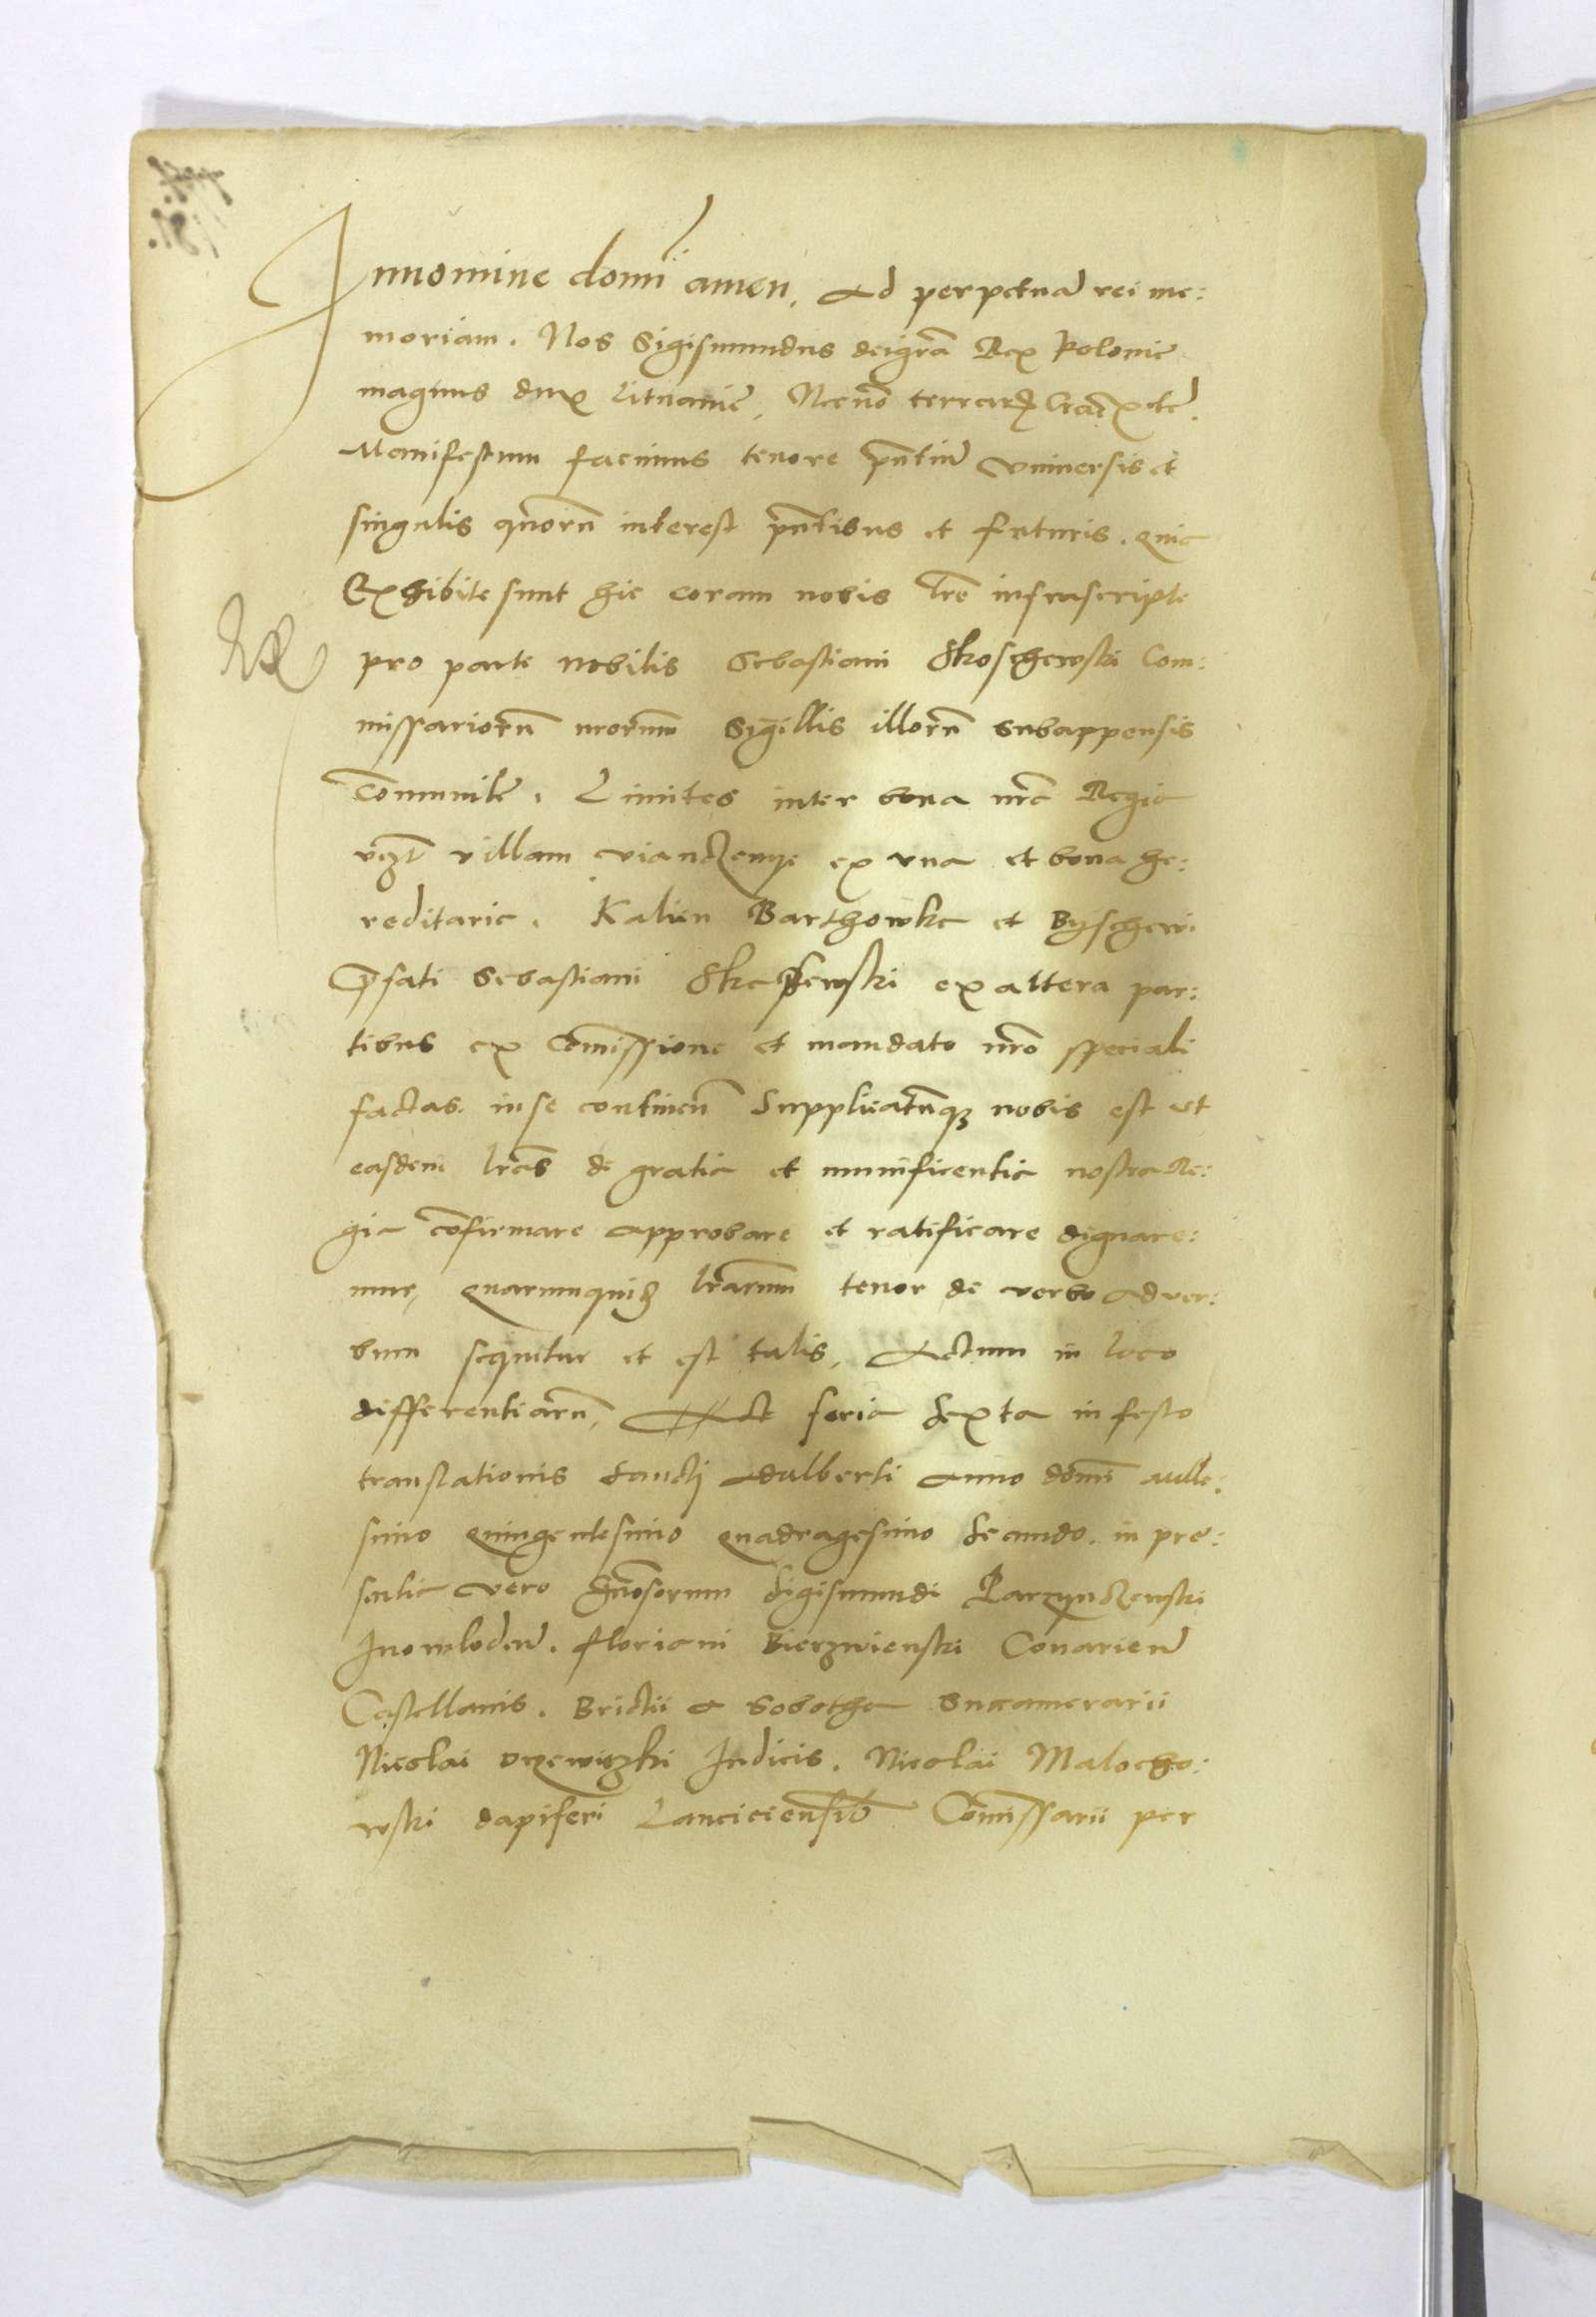 Innomine domī amen. Ad perpetuā rei me:
moriam. Nos Sigismundus deigrā Rex Polonie
magnus dux Lituanie, Necnō terrarū etc.
Manifestum facimus tenore pn̄tiū vniuersis et
singulis quorū interest pn̄tibus et futuris. quia
Exhibite sunt hic coram nobis lre infrascripte
pro parte nobilis Sebastiani Skoschewski Com:
missariorū nrorum Sigillis illorū subappensis
Comunite. Limites inter bona nrā Regia
vzt villam Vianczemÿe ex vna et bona he:
reditaria. Kalien Barthowka et Byschewi
Prefati Sebastiani ex altera par:
tibus ex Comissione et mandato nrō speciali
factas. in se continen̄ Supplicatumq3 nobis est vt
easdem lras de gratia et munificentia nostra Re:
gia cōfirmare approbare et ratificare dignare:
mur, quarumquid lrarum tenor de verbo ad ver:
bum sequitur et est talis, Actum in loco
differentiarū, feria Sexta in festo
translationis Sancti Adalberti Anno domī Mille:
simo Quingentesimo Quadragesimo Secundo. in pre:
sentia vero Gn̄osorum Sigismundi Parzynczewski
Inowloden̄. Floriani Bierzwienski Conarien̄
Castellanis. Brictii a Sobotha Succamerarii
Nicolai Drzewiczki Iudicis. Nicolai Malocho:
wski dapiferi Lanciciensib Comissarii per